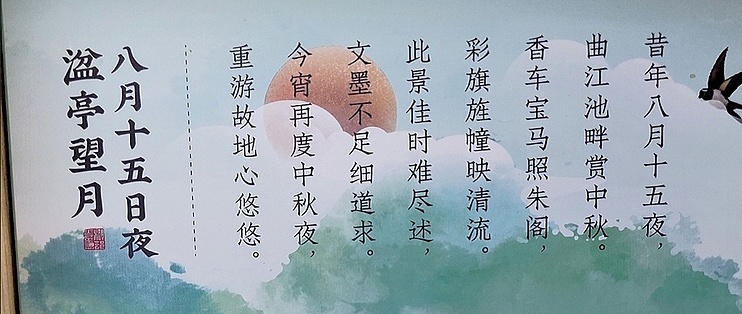 昔年八月十五夜，
曲江池畔赏中秋。
香车宝马照朱阁，
彩旗旌幢映清流。
此景佳时难尽述，
文墨不足细道求。
今宵再度中秋夜，
重游故地心悠悠。
八月十五日夜
湓亭望月